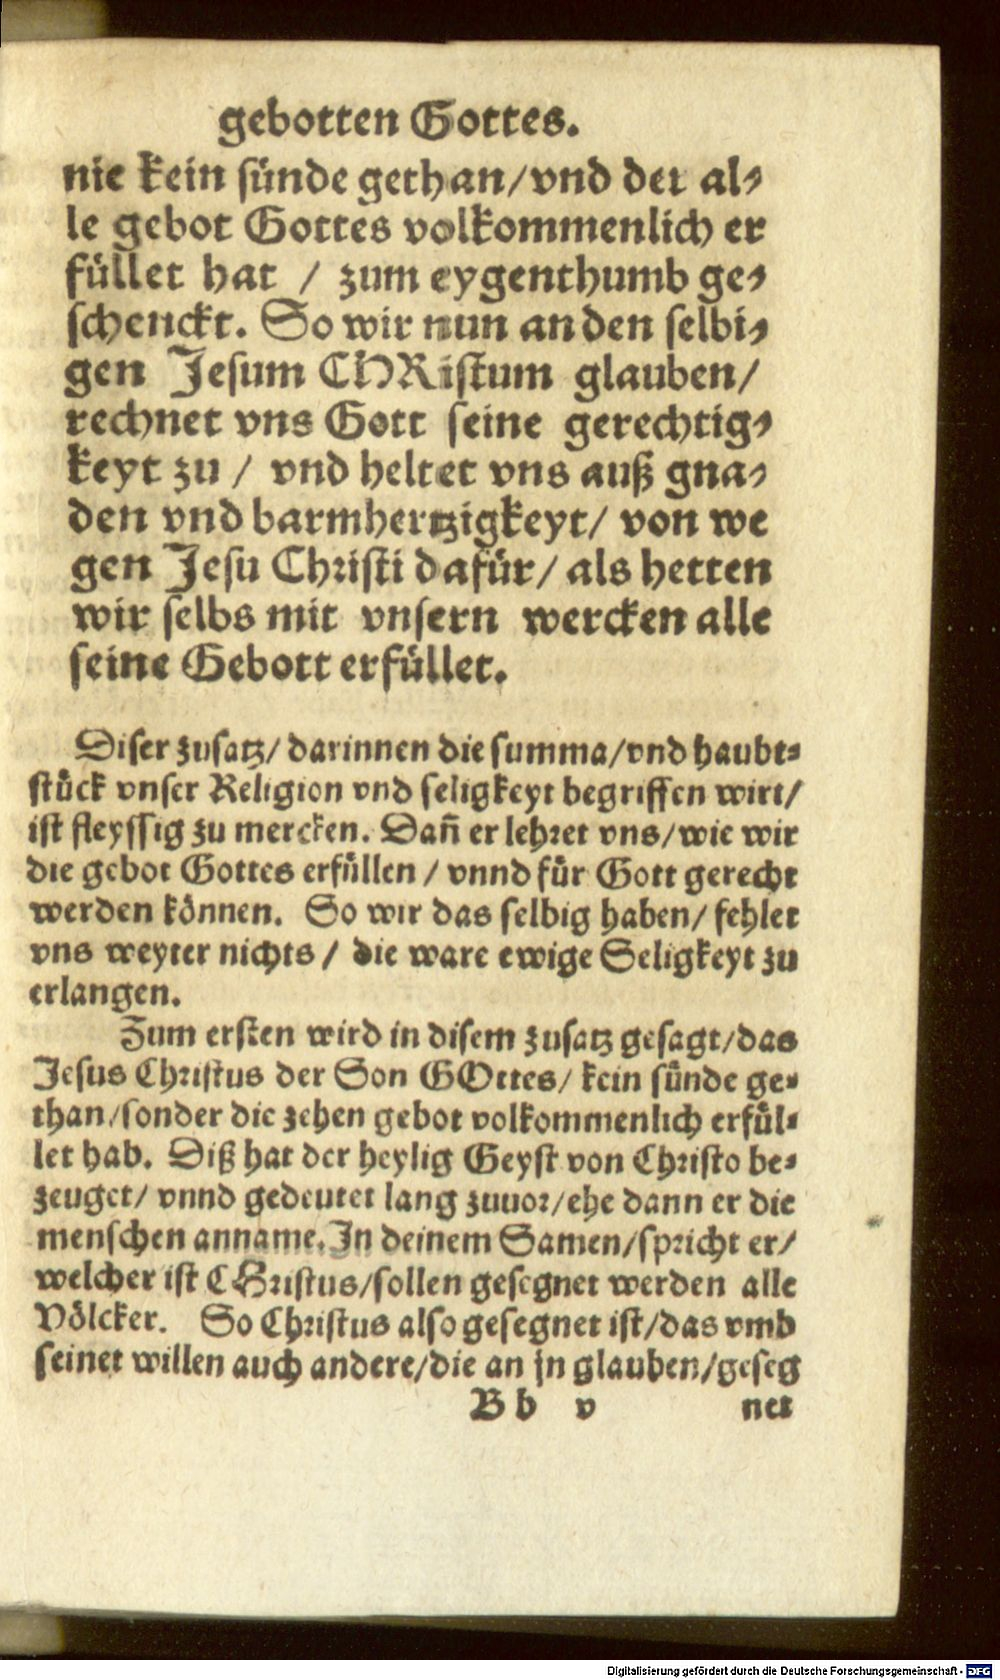 gebotten Gottes.
nie kein sünde gethan/vnd der al⸗
le gebot Gottes volkommenlich er
füllet hat / zum eygenthumb ge⸗
schenckt. So wir nun an den selbi⸗
gen Jesum CHRistum glauben/
rechnet vns Gott seine gerechtig⸗
keyt zu / vnd heltet vns auß gna⸗
den vnd barmhertzigkeyt/ von we
gen Jesu Christi dafür/ als hetten
wir selbs mit vnsern wercken alle
seine Gebott erfüllet.
Diser zusatz/ darinnen die summa/vnd haubt⸗
stück vnser Religion vnd seligkeyt begriffen wirt/
ist fleyssig zu mercken. Dañ er lehret vns/wie wir
die gebot Gottes erfüllen / vnnd für Gott gerecht
werden können. So wir das selbig haben/ fehlet
vns weyter nichts / die ware ewige Seligkeyt zu
erlangen.
Zum ersten wird in disem zusatz gesagt/das
Jesus Christus der Son GOttes/ kein sünde ge⸗
than/sonder die zehen gebot volkommenlich erfül⸗
let hab. Diß hat der heylig Geyst von Christo be⸗
zeuget/ vnnd gedeutet lang zuuor/ehe dann er die
menschen anname. In deinem Samen/spricht er/
welcher ist CHristus/sollen gesegnet werden alle
Völcker. So Christus also gesegnet ist/das vmb
seinet willen auch andere/die an jn glauben/geseg
B b v net
Digitalisierung gefördert durch die Deutsche Forschungsgemeinschaft - DFG